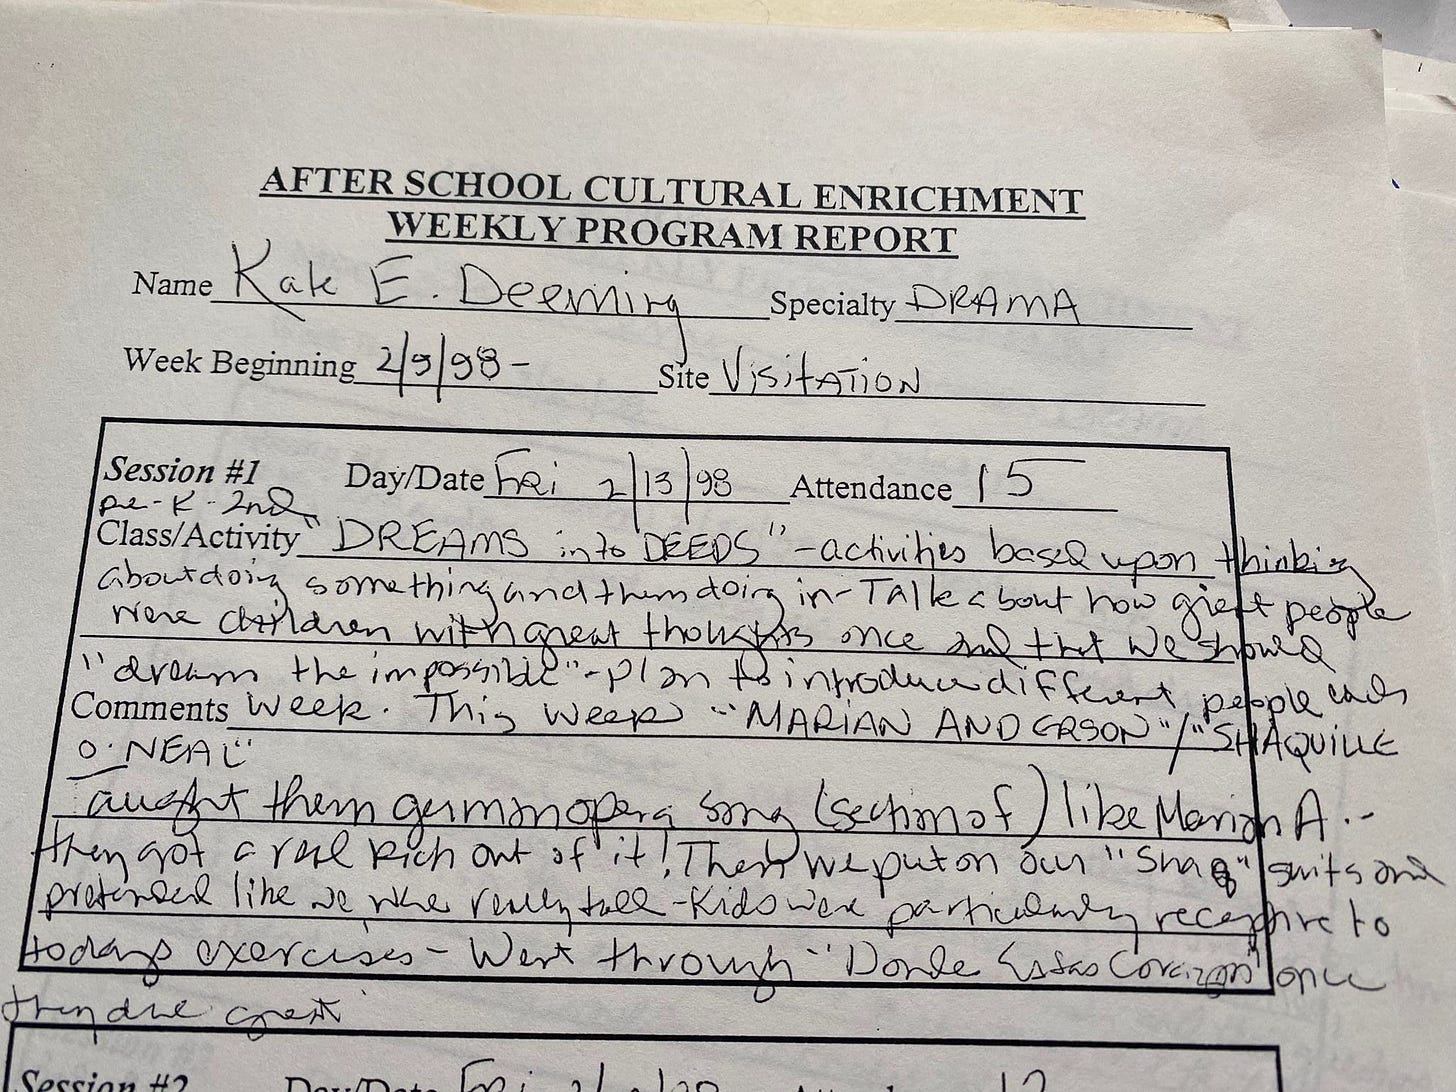 AFTER SCHOOL CULTURAL ENRICHMENT
WEEKLY PROGRAM REPORT
Name Kate E. Deeming Specialty DRAMA
Week Beginning 2/9/98 - Site VISITATION
Session #1 Day/Date Fri 2/13/98 Attendance 15
pre-K-2nd
Class/Activity "DREAMS into DEEDS" - activities based upon thinking
about doing something and them doing in - Talk about how great people
were children with great thoughts once and that we should
"dream the impossible" - plan to introduce different people each
Comments week. This week "MARIAN ANDERSON"/"SHAQUILLE
O'NEAL"
taught them german opera song (section of) like Marian A. -
they got a real kick out of it! Then we put on our "Shaq" suits and
pretended like we were really tall - Kids were particularly receptive to
todays exercises - Went through "Donde Estas Corazon" once
they due great
Session #2 Day/Date Fri Attendance 12